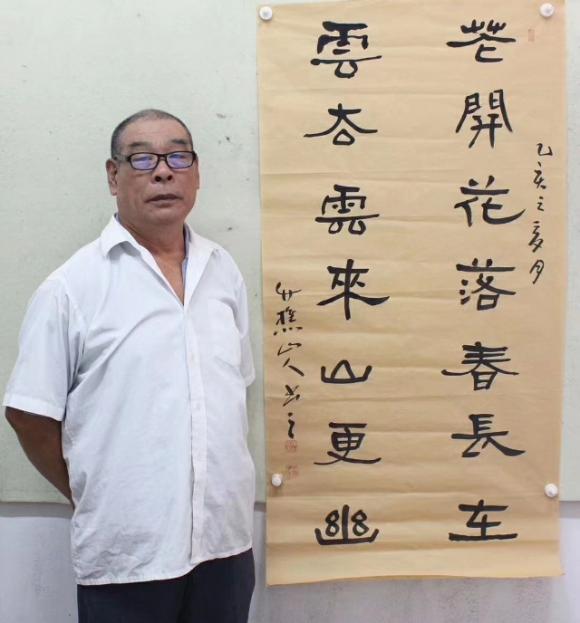 乙亥之夏月
花開花落春長在
雲去雲來山更幽
樵山人書之